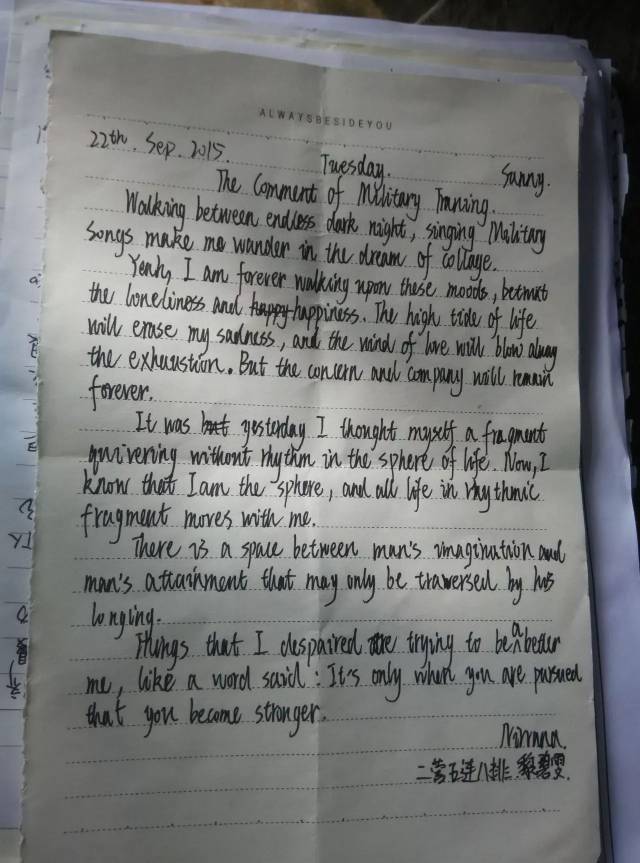 ALWAYSBESIDEYOU
22th. Sep. 2015. Tuesday. Sunny.
The Comment of Military Tranzing.
Walking between endless dark night, singing Military
songs make me wander in the dream of collage.
Yeah, I am forever walking upon these moods, betwixt
the loneliness and happy happiness. The high tide of life
will erase my sadness, and the wind of love will blow away
the exhaustion. But the concern and company will remain
forever.
It was but yesterday I thought myself a fragment
quivering without rhythm in the sphere of life. Now, I
know that I am the sphere, and all life in rhythmic
fragment moves with me.
There is a space between man's imagination and
man's attainment that may only be traversed by his
longing.
Things that I despaired are trying to be a better
me, like a word said: It's only when you are pursued
that you become stronger.
Nirvana.
二营五连八排 黎碧雯.